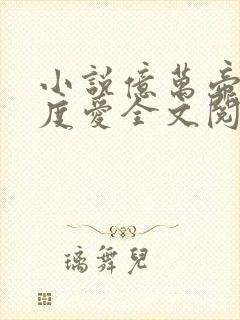 小說億萬帝
度愛全文閱
璃舞兒